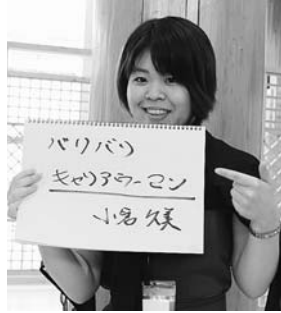 バリバリ
キャリアウーマン
小宮 久美